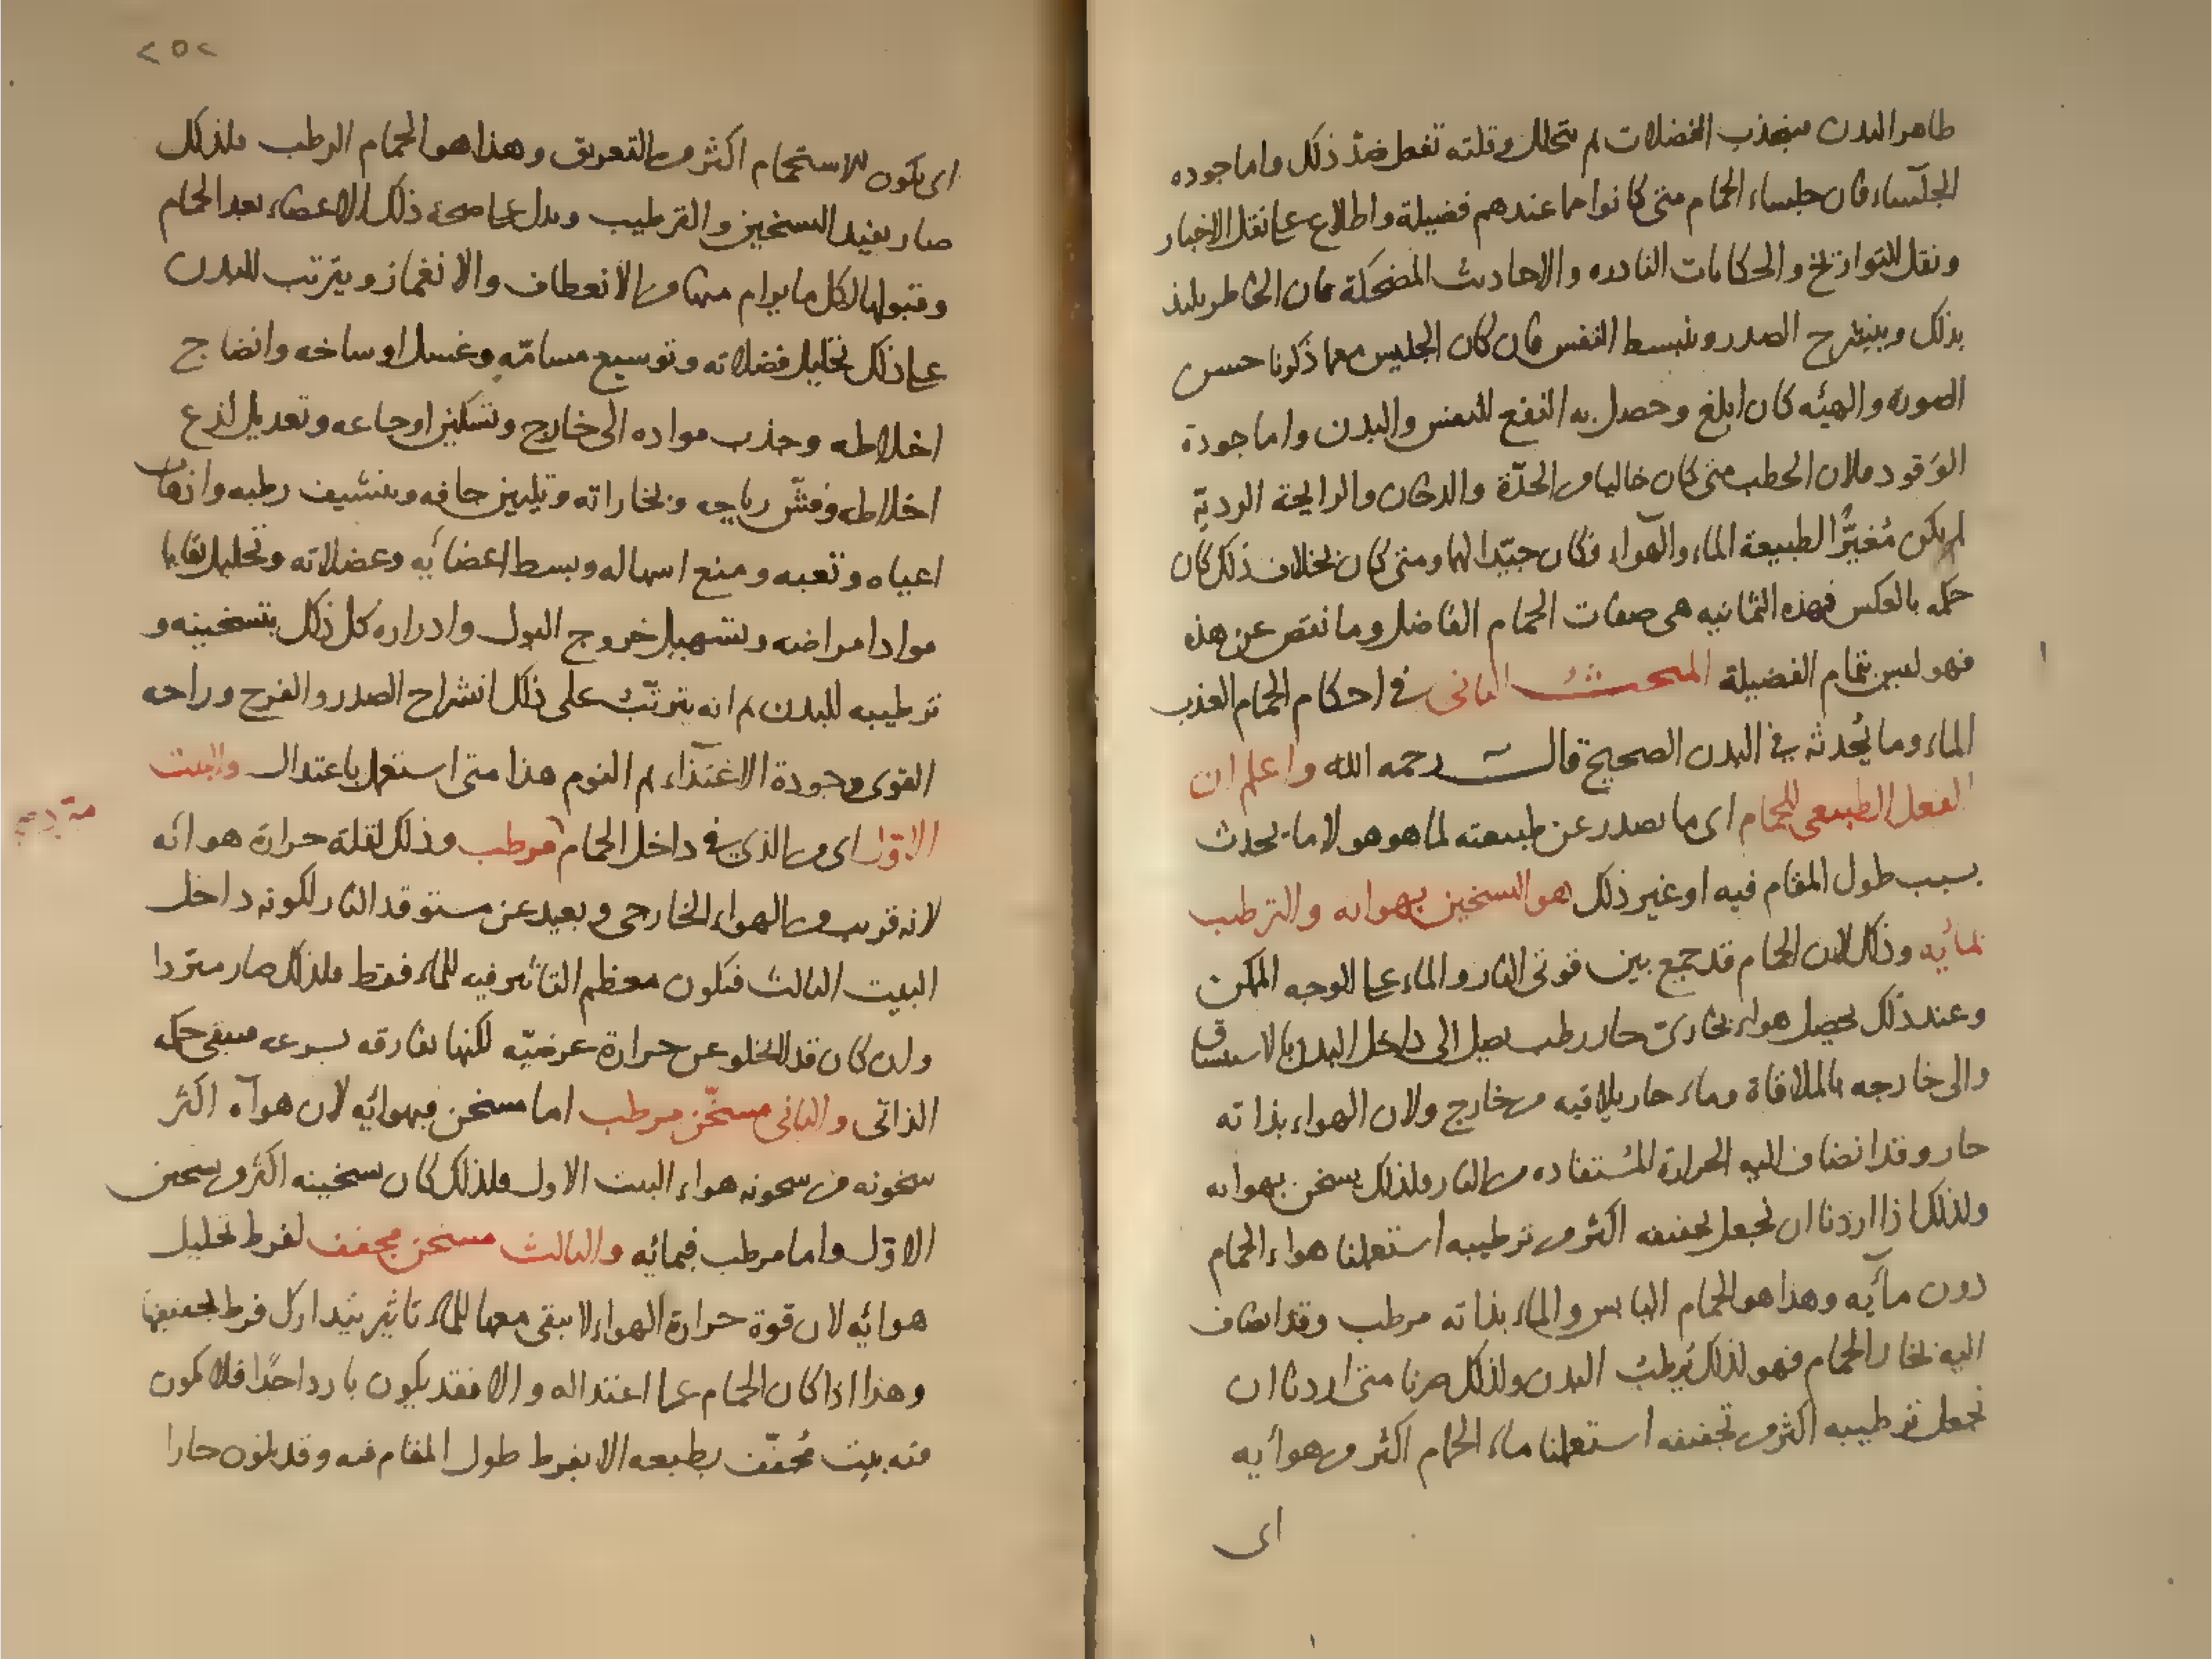 ظاهر البدن فيجذب الفضلات ثم تتحلل وقلته تفعل ضد ذلك واما جوده
الجلساء فان جلساء الحمام متى كانوا ما عندهم فضيلة واطلاع على نقل الاخبار
ونقل التواريخ والحكايات النادره والاحاديث المضحكة فان الخاطر يلتذ
بذلك وينشرح الصدر وينبسط النفس فان كان الجليس مع ما ذكرنا حسن
الصورة والهيئه كان ابلغ وحصل به النفع للنفس والبدن واما جودة
الوَقود فلان الحطب متى كان خاليا من الحدّة والدخان والرايحة الرديّه
لم يكن مُغيّرًا لطبيعة الماء والهواء فكان جيّدا لهما ومتى كان بخلاف ذلك كان
حكمه بالعكس فهذه الثمانيه هى صفات الحمام الفاضل وما نقص عن هذه
فهو ليس بتمام الفضيلة المبحث الثانى في احكام الحمام العذب
الماء وما يُحدثه في البدن الصحيح قال رحمه الله واعلم ان
الفعل الطبيعى للحمام اى ما يصدر عن طبيعته لما هو هو لا ما يحدث
بسبب طول المقام فيه او غير ذلك هو التسخين بهوائه والترطيب
بمائيه وذلك لان الحمام قد جمع بين قوتى النار والماء على الوجه الممكن
وعند ذلك يحصل هواء بخارىّ حار رطب يصل الى داخل البدن بالاستنشاق
والى خارجه بالملاقاة وماء حار يلاقيه من خارج ولان الهواء بذاته
حار وقد انضاف اليه الحرارة المُستفاده من النار ولذلك يسخن بهوائه
ولذلك اذا اردنا ان نجعل تجفيفه اكثر من ترطيبه استعملنا هواء الحمام
دون مآيه وهذا هو الحمام اليابس والماء بذاته مرطب وقد انضاف
اليه بخار الحمام فهو لذلك يُرطبُ البدن ولذلك صرنا متى اردنا ان
نجعل ترطيبه اكثر من تجفيفه استعملنا ماء الحمام اكثر من هوائيه
اى
٢٥٢
اى يكون للاستحمام اكثر من التعريق وهذا هو الحمام الرطب فلذلك
صار يفيد التسخين والترطيب ويدل على صحة ذلك الاعضاء بعد الحمام
وقبولها لكل ما يرام منها من الانعطاف والانغماز ويترتب للبدن
على ذلك تحليل فضلاته وتوسيع مسامّه وغسل اوساخه وانضاج
اخلاطه وجذب مواده الى خارج وتسكين اوجاعه وتعديل لذع
اخلاطه وفشّ رياحه وبخاراته وتليين جافه وتنشيف رطبه واذهاب
اعياه وتعبه ومنع اسهاله وبسط اعضآيه وعضلاته وتحليل بقايا
مواد امراضه وتسهيل خروج البول وادراره كل ذلك بتسخينه و
ترطيبه للبدن ثم انه يترتّب على ذلك انشراح الصدر والفرح وراحه
القوى وجودة الاغتذآء ثم النوم هذا متى استعمل باعتدال والبيت
الاوّل اى من الذي في داخل الحمام مرطب وذلك لقلة حرارة هوائه
لانه قريب من الهواء الخارجى وبعيد عن مستوقد النار لكونه داخل
البيت الثالث فيكون معظم التاثير فيه للماء فقط فلذلك صار مبرّدا
وان كان قد لا يخلو عن حرارة عرضيّه لكنها تفارقه بسرعه فيبقى حكمه
الذاتى والثانى مسخّن مرطب اما مسخن فبهوائه لان هوآه اكثر
سخونه من سخونه هواء البيت الاول فلذلك كان تسخينه اكثر من تسخين
الاوّل واما مرطب فبمائه والثالث مسخن مجفف لفرط تحليل
هوائه لان قوة حرارة الهواء لا يبقى معها للماء تاثير يتدارك فرط تجفيفها
وهذا اذا كان الحمام على اعتداله والا فقد يكون باردا جدًا فلا يكون
فيه بيت مُجفّف بطبعه الا بفرط طول المقام فيه وقد يكون حارا